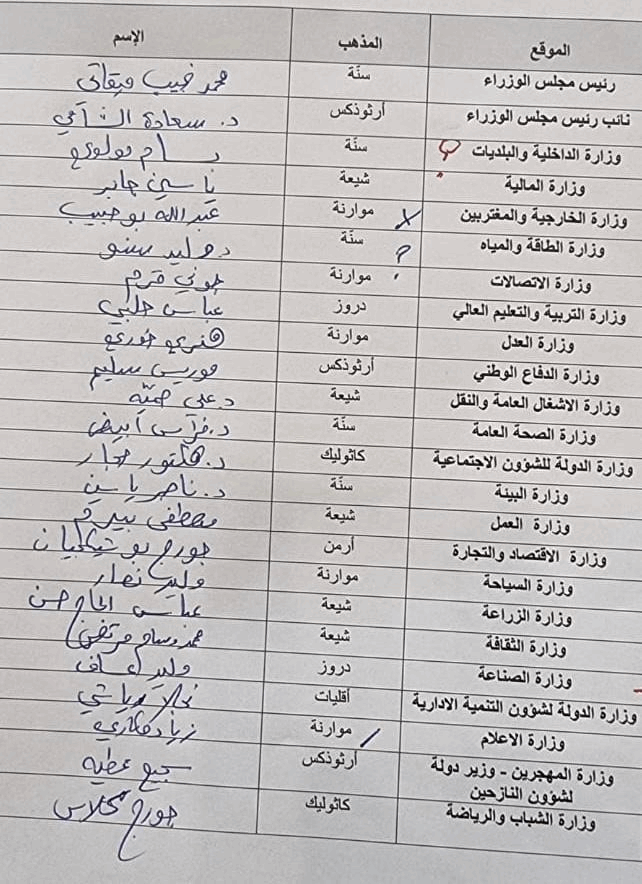 الموقع المذهب الإسم
رئيس مجلس الوزراء سنّة محمد نجيب ميقاتي
نائب رئيس مجلس الوزراء أرثوذكس د. سعادة الشامي
وزارة الداخلية والبلديات سنّة بسام مولوي
وزارة المالية شيعة ياسين جابر
وزارة الخارجية والمغتربين موارنة عبدالله بو حبيب
وزارة الطاقة والمياه سنّة ? د. وليد سنو
وزارة الاتصالات موارنة جوني قرم
وزارة التربية والتعليم العالي دروز عباس حلبي
وزارة العدل موارنة هنري خوري
وزارة الدفاع الوطني أرثوذكس موريس سليم
وزارة الاشغال العامة والنقل شيعة د. علي حميّه
وزارة الصحة العامة سنّة د. فراس أبيض
وزارة الدولة للشؤون الاجتماعية كاثوليك د. هكتور حجار
وزارة البيئة سنّة د. ناصر ياسين
وزارة العمل شيعة مصطفى بيرم
وزارة الاقتصاد والتجارة أرمن جورج بوشيكيان
وزارة السياحة موارنة وليد نصار
وزارة الزراعة شيعة عباس الحاج حسن
وزارة الثقافة شيعة محمد وسام مرتضى
وزارة الصناعة دروز وليد عساف
وزارة الدولة لشؤون التنمية الادارية أقليات نجلا رياشي
وزارة الاعلام موارنة زياد مكاري
وزارة المهجرين - وزير دولة أرثوذكس سجيع عطيه
لشؤون النازحين
وزارة الشباب والرياضة كاثوليك جورج كلاس